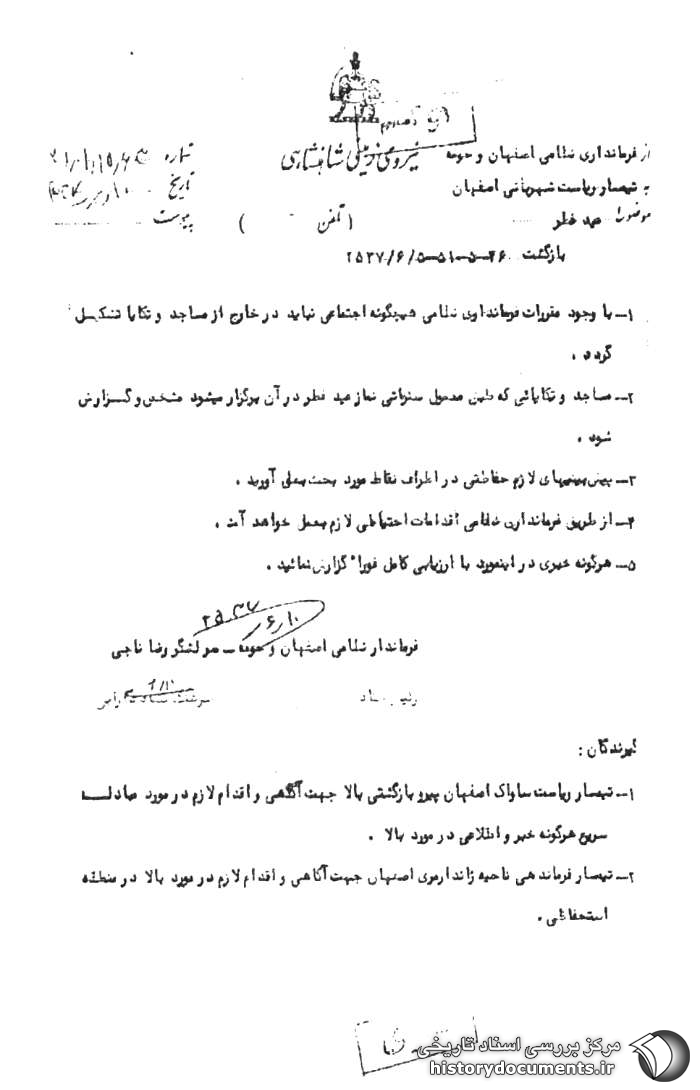 نیروی زمینی شاهنشاهی
از فرمانداری نظامی اصفهان و حومه
شماره
به تیمسار ریاست شهربانی اصفهان
تاریخ
موضوع عید فطر
( تلفن )
پیوست
بازگشت ۴۶-۵-۵۱-۵/۶/۲۵۳۷
۱- با وجود مقررات فرمانداری نظامی هیچگونه اجتماعی نباید در خارج از مساجد و تکایا تشکیل
گردد .
۲- مساجد و تکایائی که طبق معمول سنواتی نماز عید فطر در آن برگزار میشود مشخص و گزارش
شود .
۳- پیش‌بینیهای لازم حفاظتی در اطراف نقاط مورد بحث بعمل آورید .
۴- از طریق فرمانداری نظامی اقدامات احتیاطی لازم بعمل خواهد آمد .
۵- هرگونه خبری در اینمورد با ارزیابی کامل فورا" گزارش نمائید .
۲۵۳۷
۱۰/۶
فرماندار نظامی اصفهان و حومه - سرلشگر رضا ناجی
رئیس ستاد
گیرندگان :
۱- تیمسار ریاست ساواک اصفهان پیرو بازگشتی بالا جهت آگاهی و اقدام لازم در مورد مبادله
سریع هرگونه خبر و اطلاعی در مورد بالا .
۲- تیمسار فرماندهی ناحیه ژاندارمری اصفهان جهت آگاهی و اقدام لازم در مورد بالا در منطقه
استحفاظی .
مرکز بررسی اسناد تاریخی
historydocuments.ir